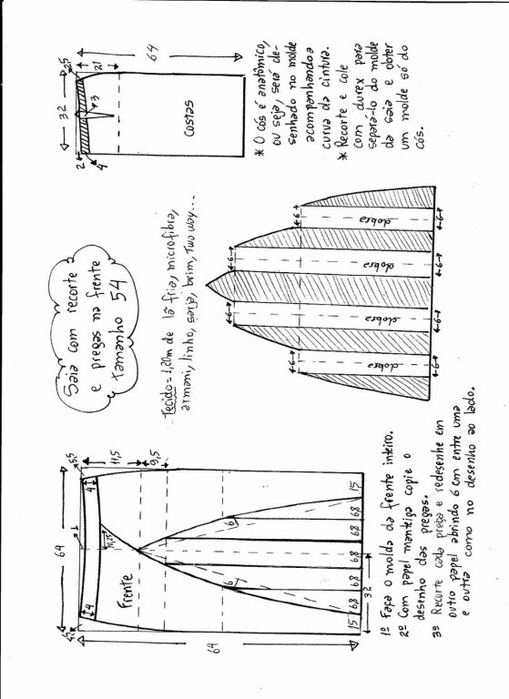 Saia com recorte
e pregas na frente
tamanho 54
Tecido = 1,20m de lã fria, microfibra,
armani, linho, sarja, brim, Two way...
64
4
4
11,5
9,5
10,25
Frente
64
6
6
15 6,8 6,8 6,8 6,8 6,8 15
32
1º Faça o molde da frente inteiro.
2º Com papel manteiga copie o
desenho das pregas.
3º Recorte cada prega e redesenhe em
outro papel abrindo 6 cm entre uma
e outra como no desenho ao lado.
6
6
6
6
dobra
dobra
dobra
dobra
6
6
6
6
32
21
3
2
4
64
Costas
* O cós é anatômico,
ou seja, será de-
senhado no molde
acompanhando a
curva da cintura.
* Recorte e cole
com durex para
separá-lo do molde
da saia e obter
um molde só do
cós.